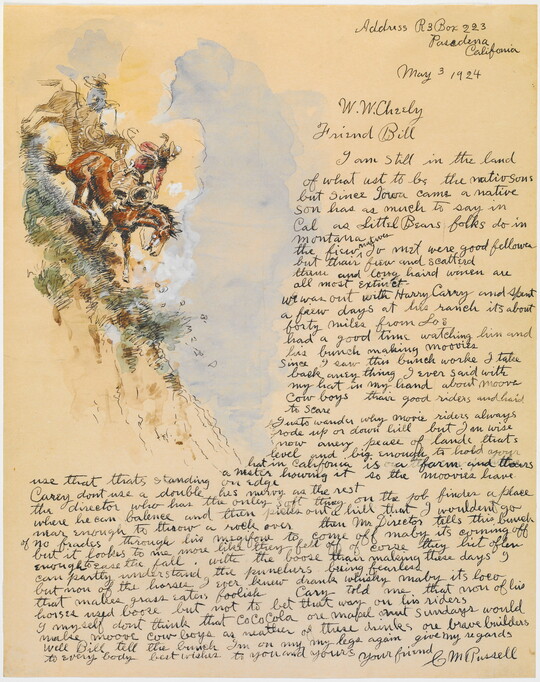 Address R3 Box 223
Pasedena
Califonia
May 3 1924
W.W. Cheely
Friend Bill
I am still in the land
of what ust to be the nativ sons
but since Iowa came a native
son has as much to say in
Cal as Littel Bears folks do in
montana
natives
the fiew Iv met were good fellows
but thair fiew and scatterd
them and long haird women are
all most extinct.
we was out with Harry Carry and spent
a fiew days at his ranch its about
forty miles from Los
had a good time watching him and
his bunch making moovies
Since I saw this bunch worke I take
back aney thing I ever said with
my hat in my hand about moove
Cow boys thair good riders and haid
to scare
I usto wander why movie riders always
rode up or down hill but I'm wise
now aney peace of lande that's
level and big enough to hold your
hat in California is a farm and thairs
a nester howing it so the moovies have
use that thats standing on edge
Carey dont use a double hes nervy as the rest
the director who has the only soft thing on the job findes a place
where he can balence and then picks out a hill that I wouldent go
near enough to throw a rock over then Mr Director tells this bunch
of no friends through his megafone to come off maby its coming off
but it lookes to me more like they fell off of corse they hit often
enough to ease the fall. with the boose thair makeing these days I
can partly understand the punchers being fearless
but non of the horses I ever knew drank whisky maby its loco
that makes grass eaters foolish Cary told me that non of his
horses used booze but not to bet that way on his riders
I myself dont think that CoCoCola ore maple nut sundays would
make moove cow boys as neather of these drinks ore brave builders
well Bill tell the bunch Im on my legs again give my regards
to every body best wishes to you and yours your friend
C M Russell